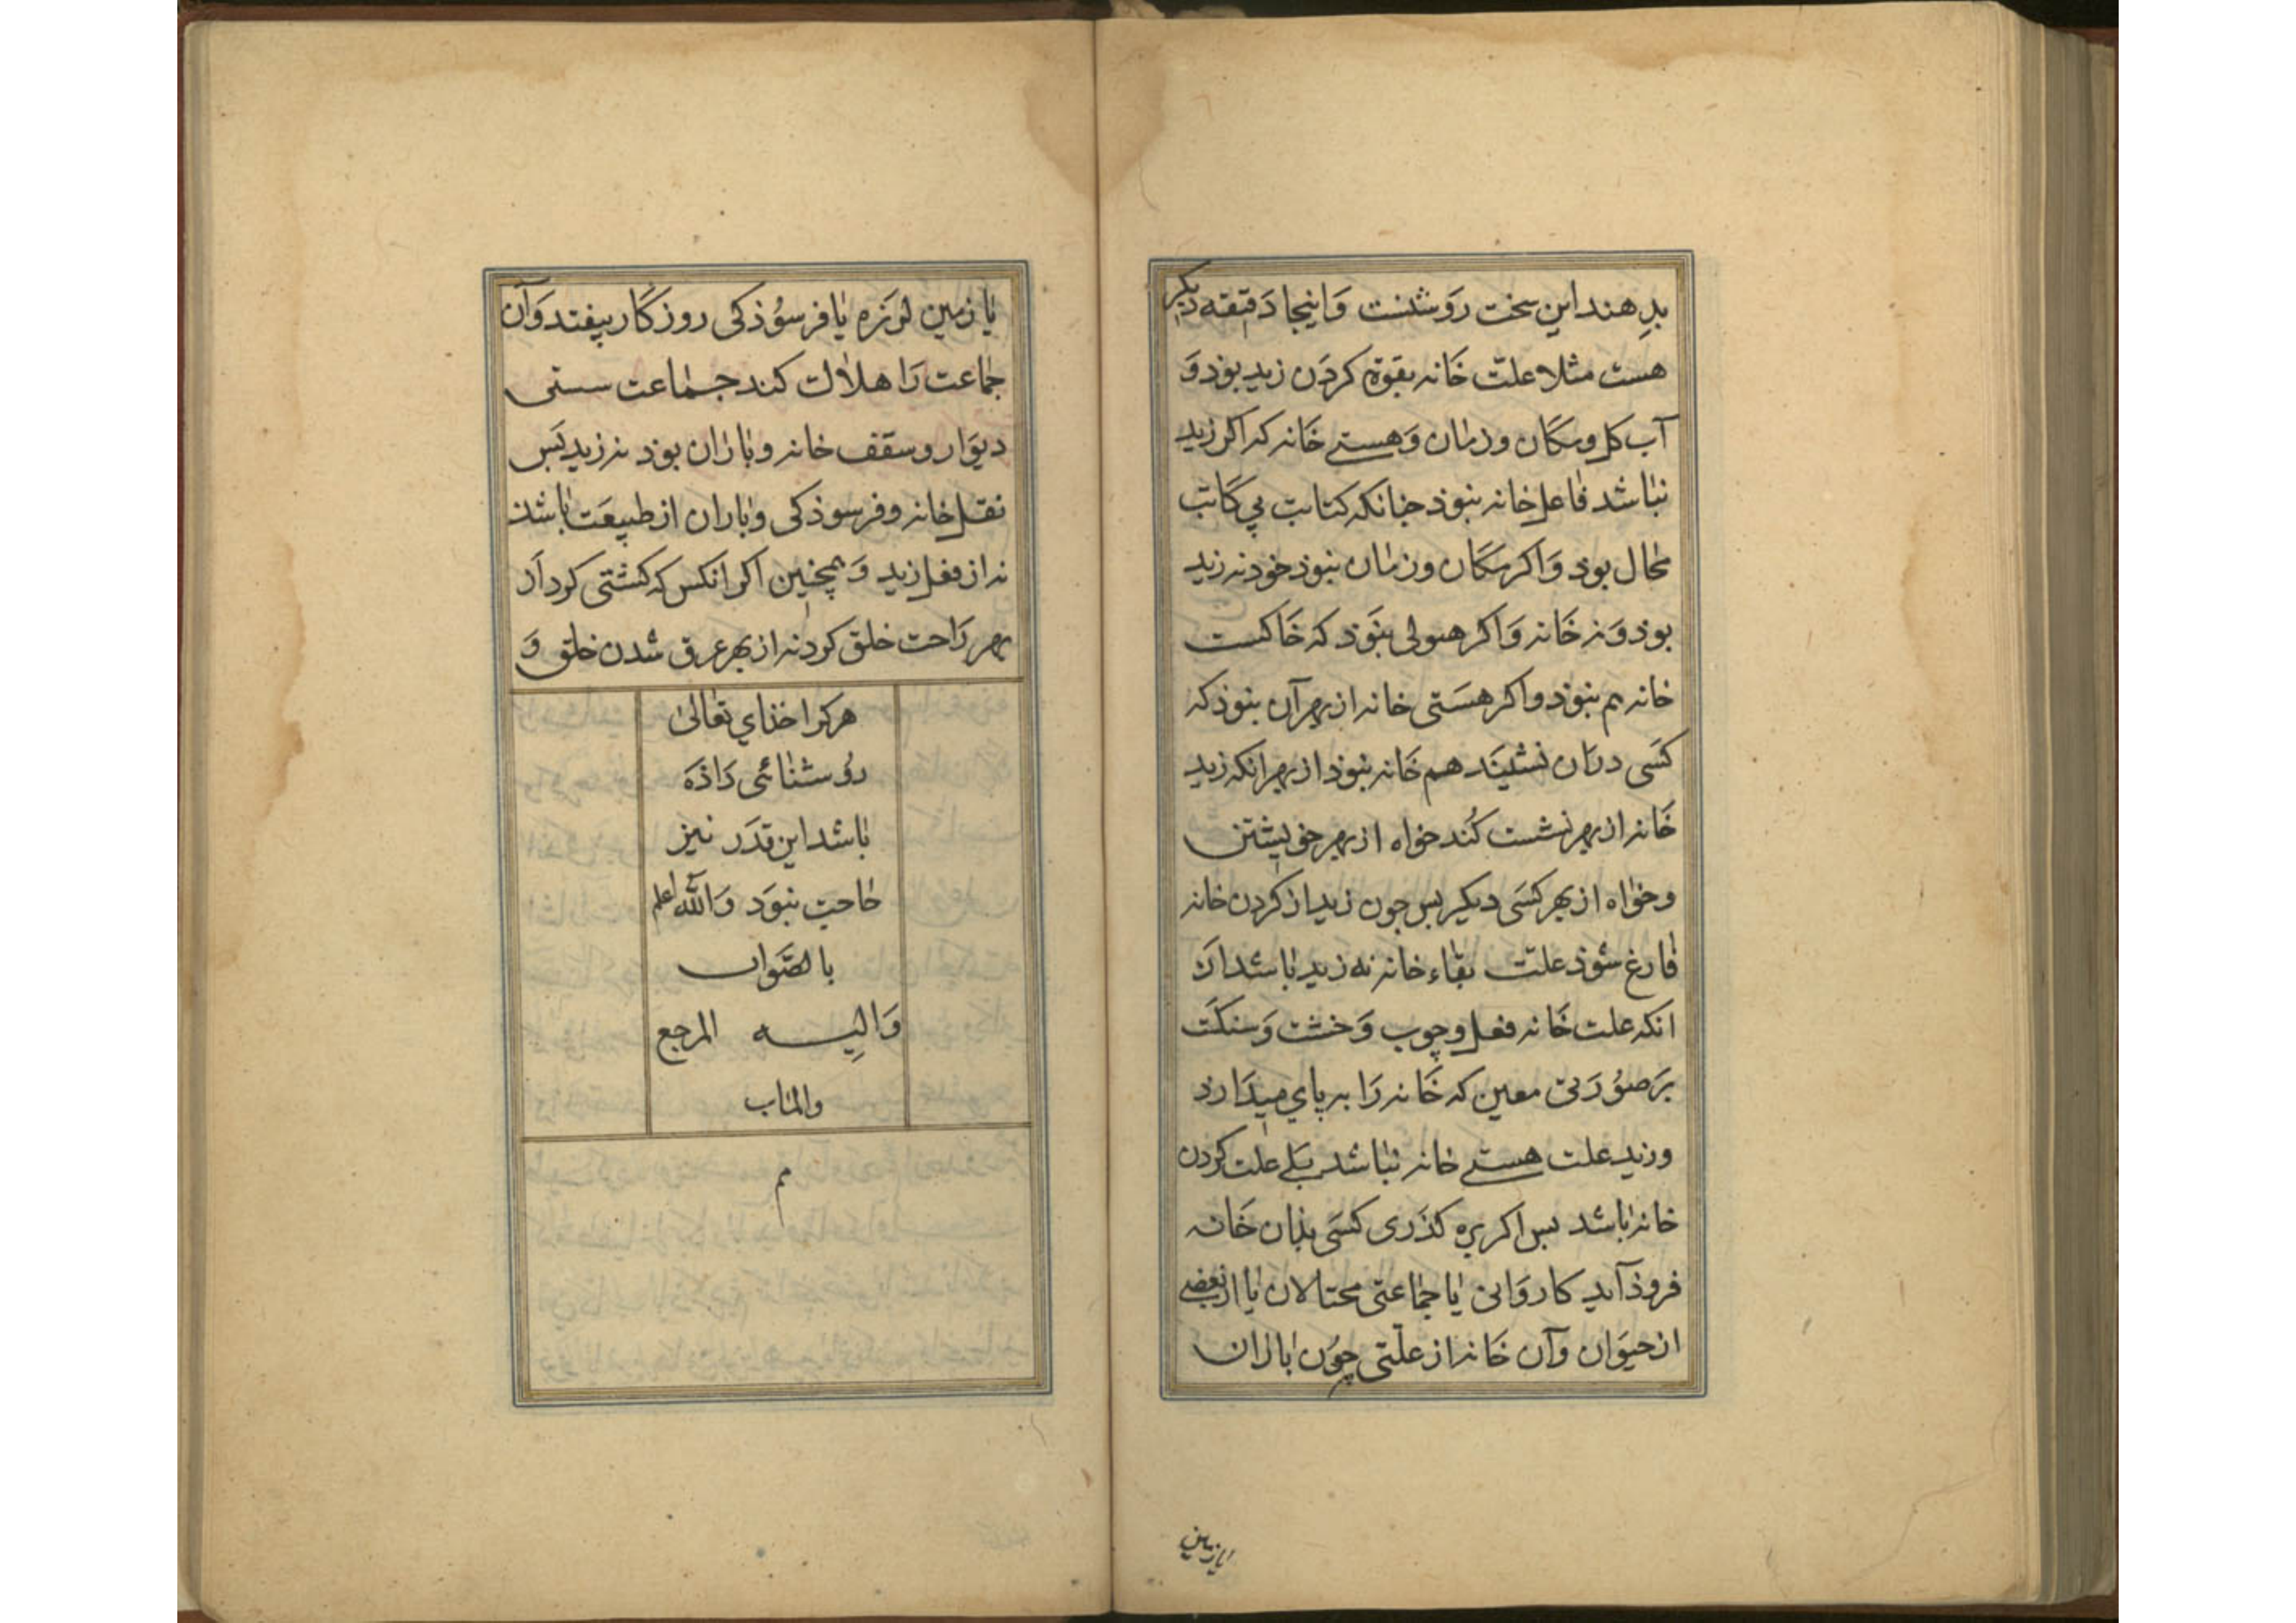 بدهند این سخت روشنست و اینجا دقیقه دیکر
هست مثلا علت خانه بقوة کردن زید بود و
آب کل و مکان و زمان و هستی خانه که اکر زید
نباشد فاعل خانه نبوذ جنانکه کتابت بی کاتب
محال بوذ و اکر مکان و زمان نبوذ خود نه زید
بوذ و نه خانه و اکر هیولی نبوذ که خاکست
خانه هم نبوذ و اکر هستی خانه از بهر آن نبوذ که
کسی دران نشیند هم خانه نبوذ از بهر انکه زید
خانه از بهر نشست کند خواه از بهر خویشتن
و خواه از بهر کسی دیکر بس جون زید از کردن خانه
فارغ شوذ علت بقاء خانه نه زید باشد از
انکه علت خانه فعل و چوب و خشت و سنکت
بر صورتی معین که خانه را بر پای میدارذ
و زید علت هستی خانه نباشد بلی علت کردن
خانه باشد بس اکر بره کذری کسی بذان خانه
فروذ آید کاروانی یا جماعتی محتالان یا از بعضی
از حیوان و آن خانه از علتی چون باران
یا زمین
یا زمین لرزه یا فرسوذکی روزکار بیفتد و آن
جماعت را هلاک کند جماعت سستی
دیوار و سقف خانه و باران بوذ نه زید پس
نقل خانه و فرسوذکی و باران از طبیعت باشد
نه از فعل زید و همچنین اکر انکس که کشتی کرد از
بهر راحت خلق کرد نه از بهر غرق شدن خلق و
هرکرا خذای تعالی
روشنائی داذه
باشد این قدر نیز
حاجت نبود والله اعلم
بالصواب
والیه المرجع
والمآب
م